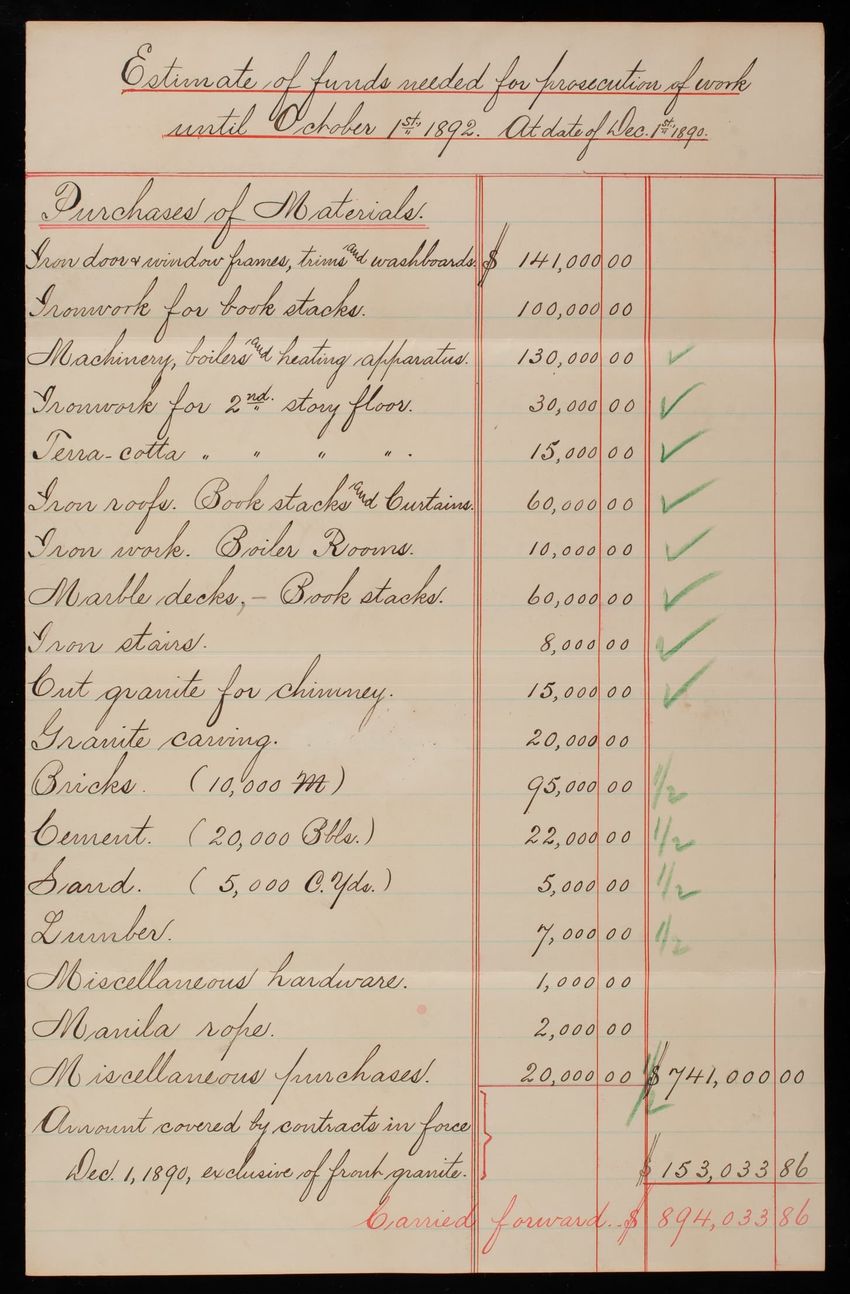 Estimate of funds needed for prosecution of work
until October 1st, 1892. At date of Dec. 1st, 1890.
Purchases of Materials.
Iron door & window frames, trims and washboards. $ 141,000 00
Ironwork for book stacks. 100,000 00
Machinery, boilers and heating apparatus. 130,000 00 ✓
Ironwork for 2nd. story floor. 30,000 00 ✓
Terra-cotta " " " " . 15,000 00 ✓
Iron roofs. Book stacks and Curtains. 60,000 00 ✓
Iron work. Boiler Rooms. 10,000 00 ✓
Marble decks, – Book stacks. 60,000 00 ✓
Iron stairs. 8,000 00 ✓
Cut granite for chimney. 15,000 00 ✓
Granite carving. 20,000 00
Bricks. (10,000 M) 95,000 00 1/2
Cement. (20,000 Bbls.) 22,000 00 1/2
Sand. (5,000 C. Yds.) 5,000 00 1/2
Lumber. 7,000 00 1/2
Miscellaneous hardware. 1,000 00
Manila rope. 2,000 00
Miscellaneous purchases. 20,000 00 1/2 $ 741,000 00
Amount covered by contracts in force
Dec. 1, 1890, exclusive of front granite. $ 153,033 86
Carried forward.. $ 894,033 86